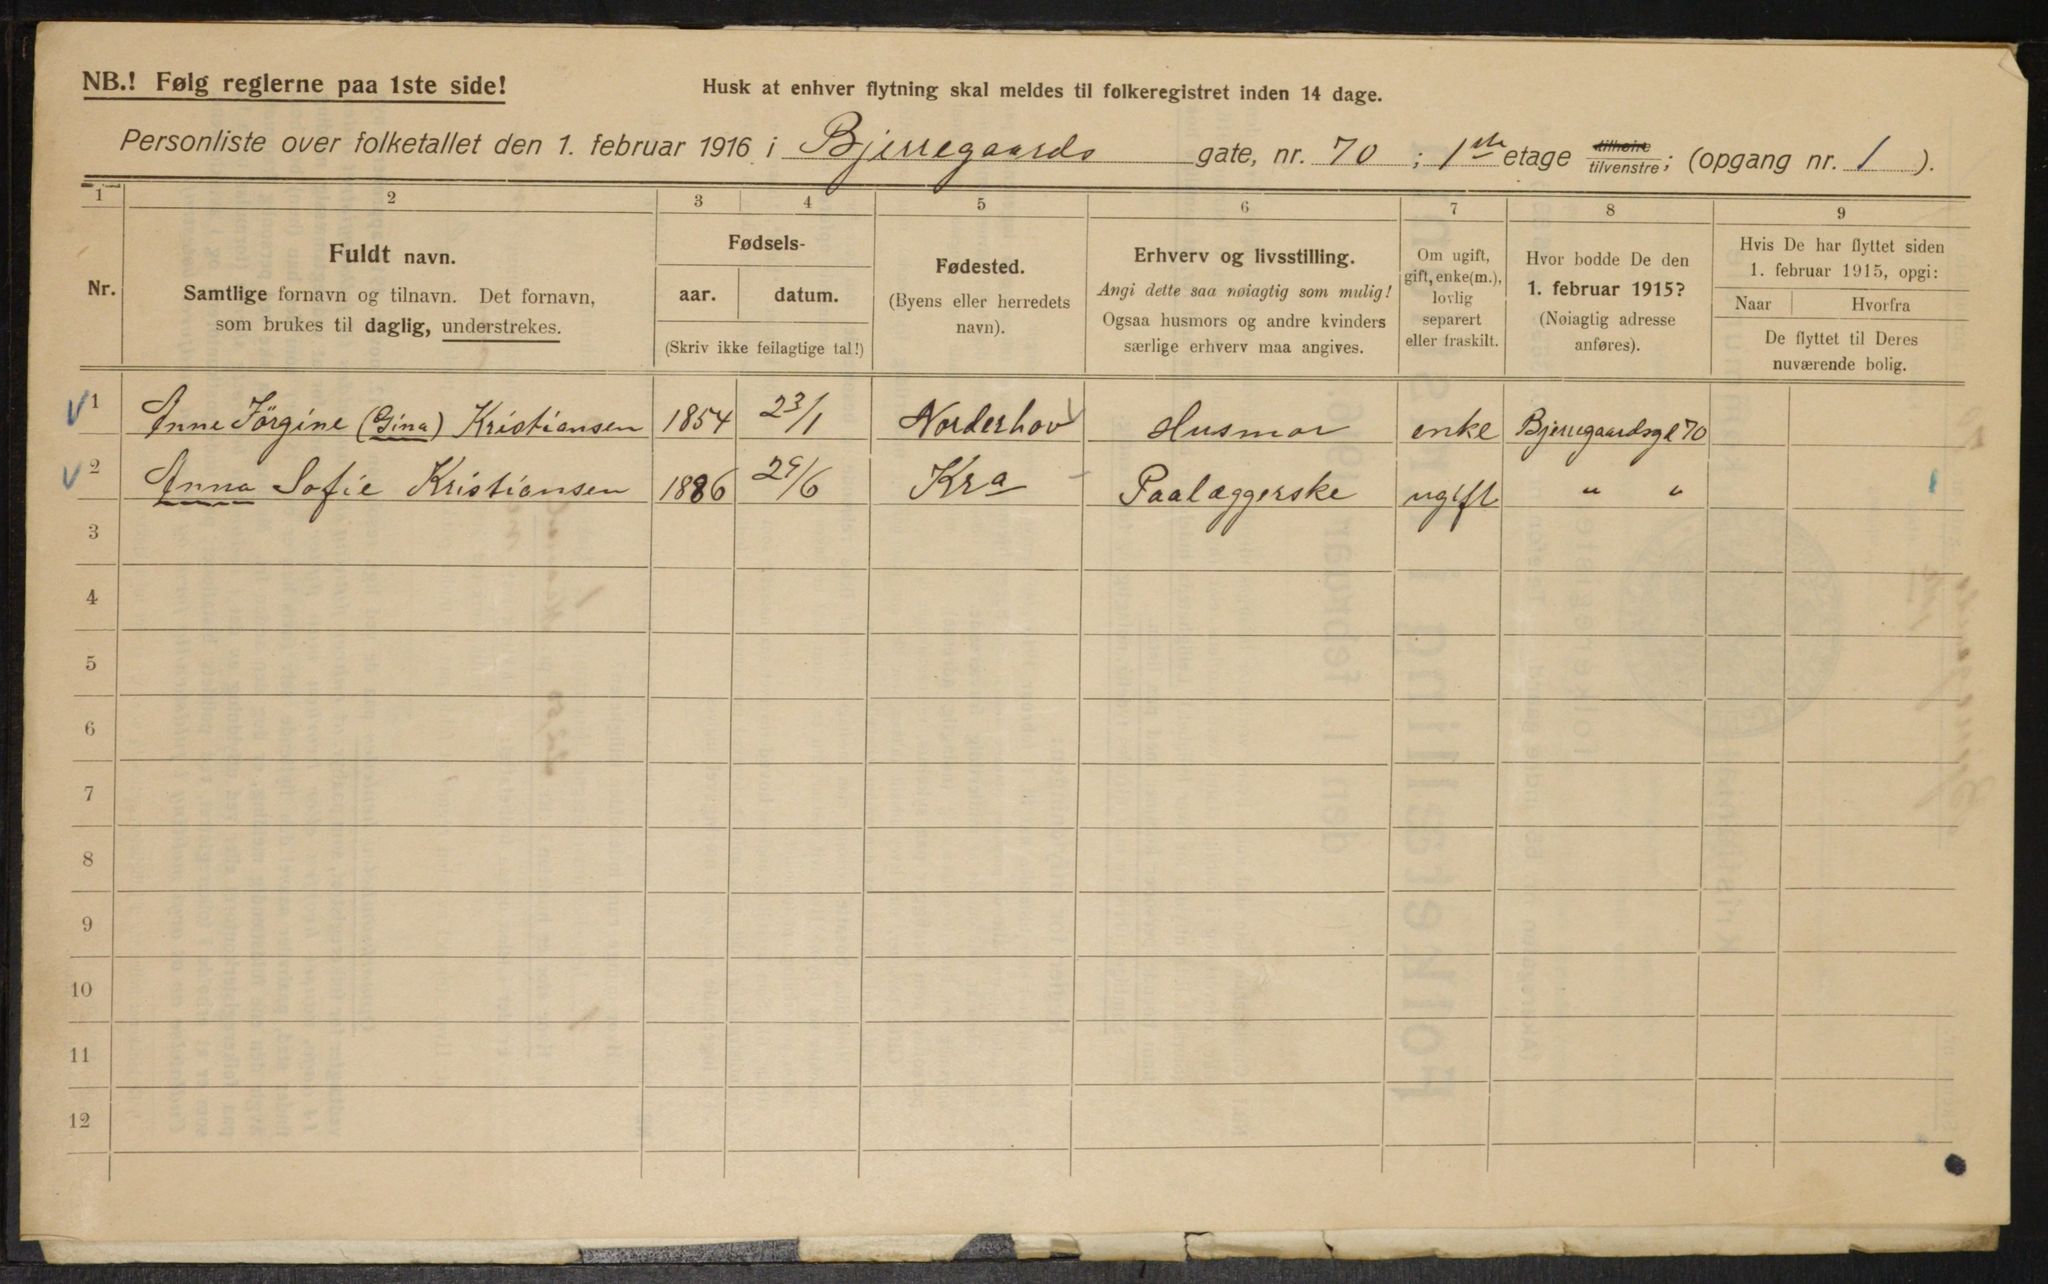 NB.! Følg reglerne paa 1ste side!
Husk at enhver flytning skal meldes til folkeregistret inden 14 dage.
Personliste over folketallet den 1. februar 1916 i Bjerregaards gate, nr. 70; 1ste etage tilhøire/tilvenstre; (opgang nr. 1).
1 2 3 4 5 6 7 8 9
Nr.
Fuldt navn.
Samtlige fornavn og tilnavn. Det fornavn,
som brukes til daglig, understrekes.
Fødsels-
aar. datum.
(Skriv ikke feilagtige tal!)
Fødested.
(Byens eller herredets
navn).
Erhverv og livsstilling.
Angi dette saa nøiagtig som mulig!
Ogsaa husmors og andre kvinders
særlige erhverv maa angives.
Om ugift,
gift, enke(m.),
lovlig
separert
eller fraskilt.
Hvor bodde De den
1. februar 1915?
(Nøiagtig adresse
anføres).
Hvis De har flyttet siden
1. februar 1915, opgi:
Naar Hvorfra
De flyttet til Deres
nuværende bolig.
1 Anne Jörgine (Gina) Kristiansen 1854 23/1 Norderhov Husmor enke Bjerregaardsgt 70
2 Anna Sofie Kristiansen 1886 29/6 Kra Paalæggerske ugift " "
3
4
5
6
7
8
9
10
11
12